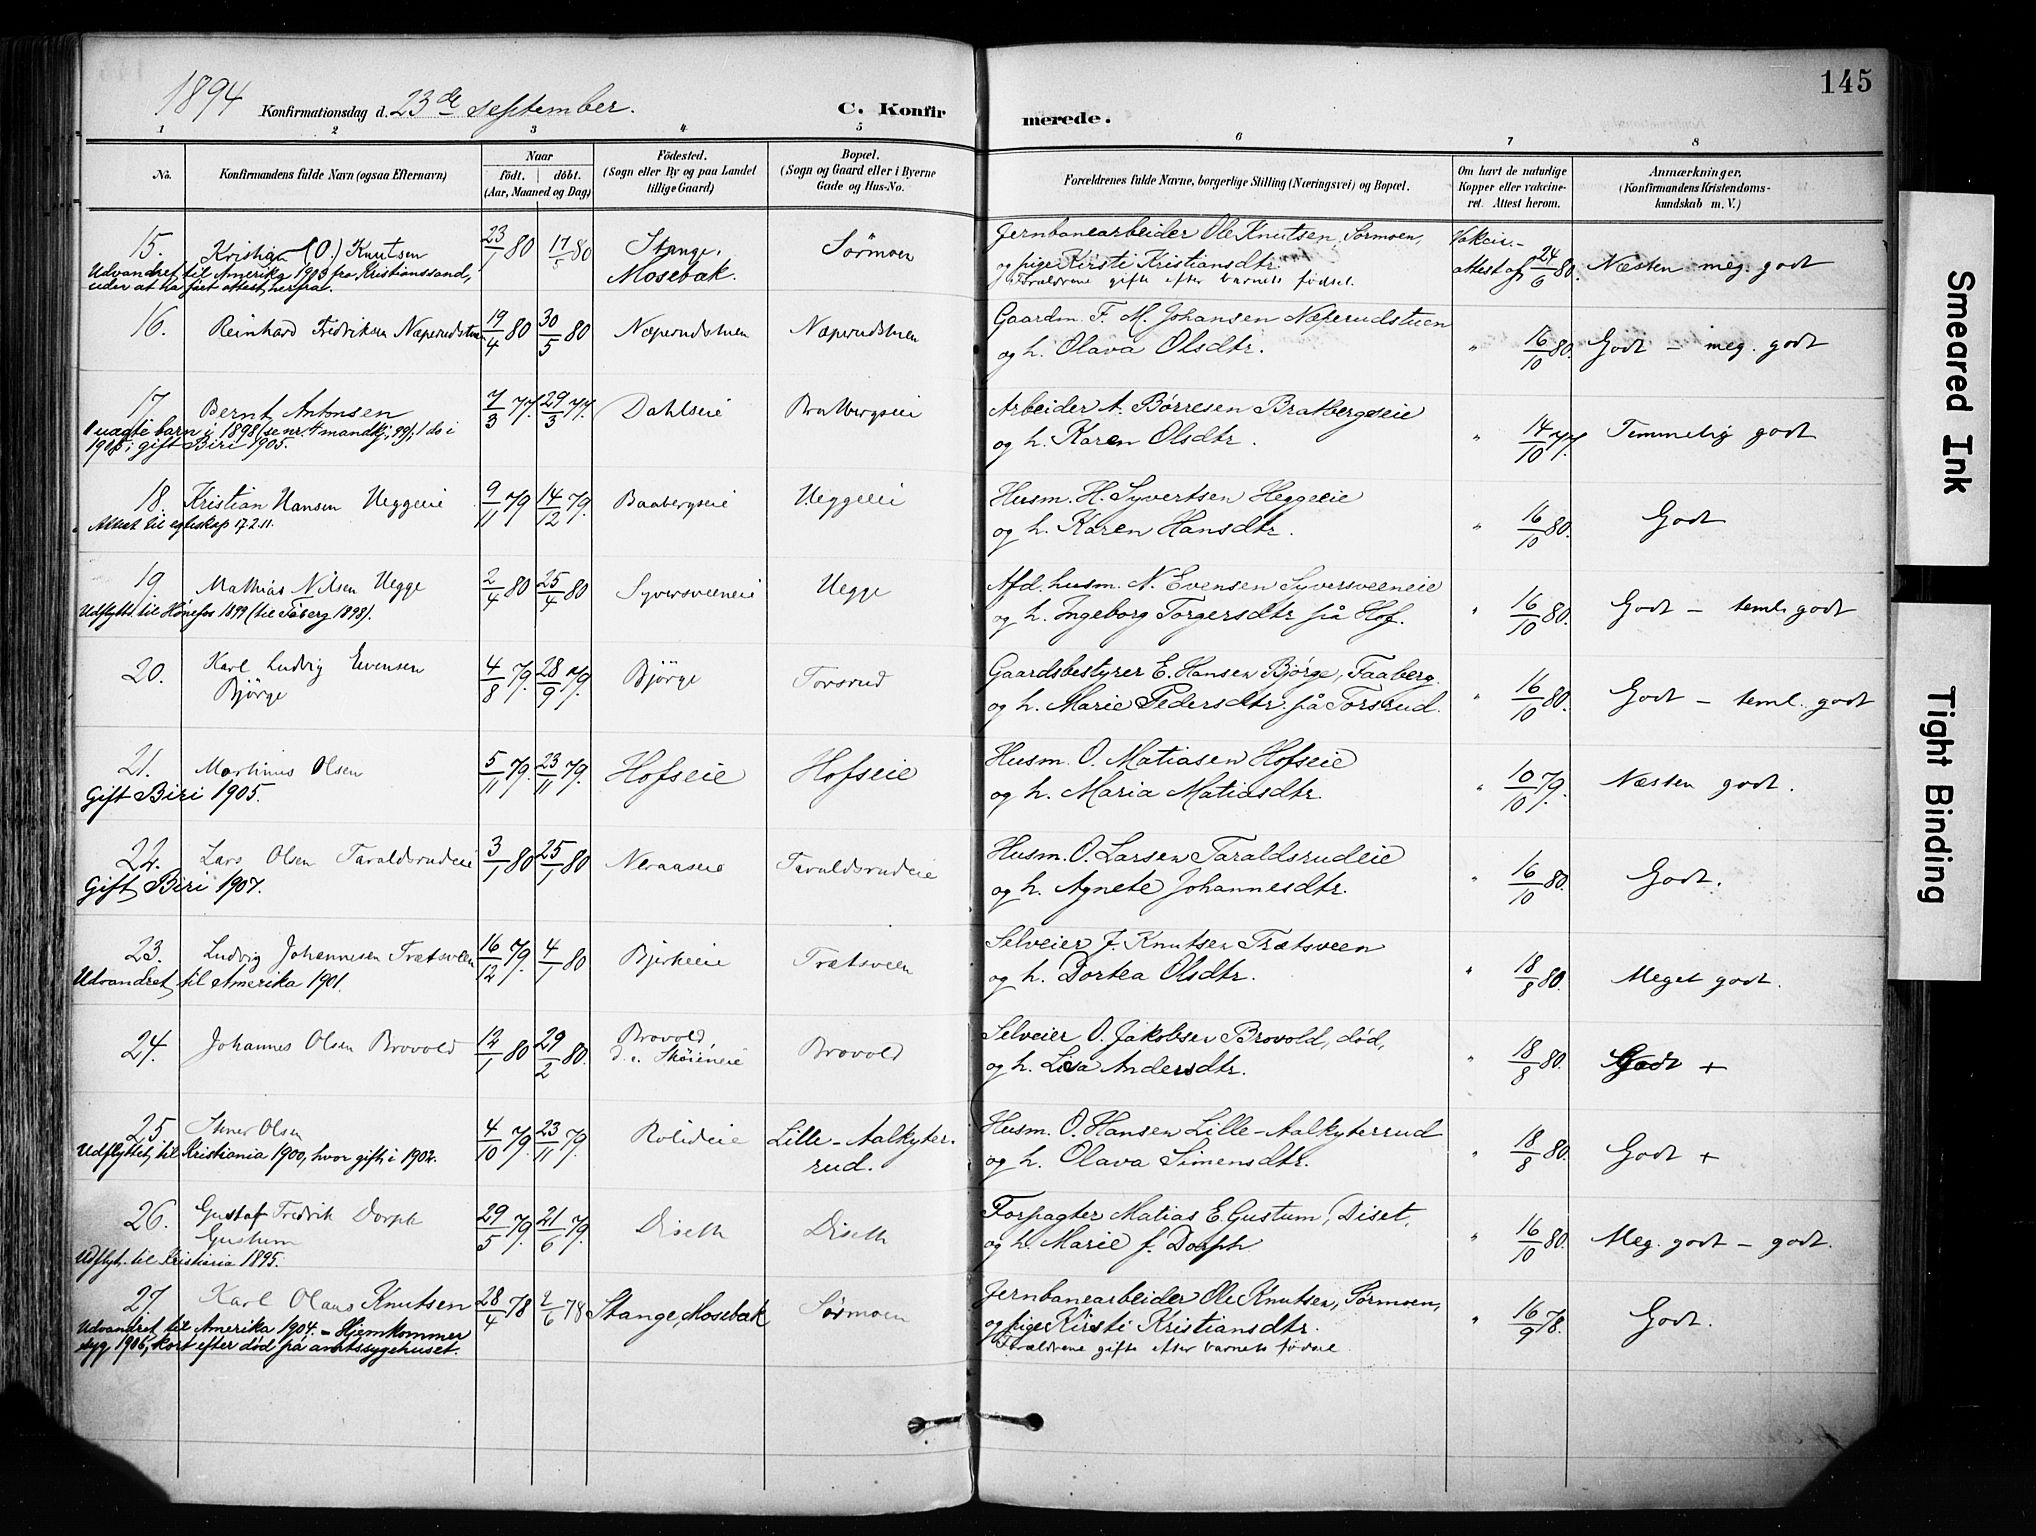 145
1894 Konfirmationsdag d. 23de september. C. Konfirmerede.
1 2 3 4 5 6 7 8
No.
Konfirmandens fulde Navn (ogsaa Efternavn)
Naar
født. døbt.
(Aar, Maaned og Dag)
Fødested.
(Sogn eller By og paa Landet
tillige Gaard)
Bopæl.
(Sogn og Gaard eller i Byerne
Gade og Hus-No.
Forældrenes fulde Navne, borgerlige Stilling (Næringsvei) og Bopæl.
Om havt de naturlige
Kopper eller vakcine-
ret. Attest herom.
Anmærkninger,
(Konfirmandens Kristendoms-
kundskab m. V.)
15. Kristian (O.) Knutsen 23/1 80 17/5 80 Stange, Sørmoen Jernbanearbeider Ole Knutsen, Sørmoen, Vakcin.-
Mosebæk. og pige Kirsti Kristiansdtr. attest af 24/6 80. Næsten meg. godt
Udvandret til Amerika 1903 fra Kristianssand, Forældrene gifte efter barnets fødsel.
uden at ha ført attest herfra.
16. Reinhard Fredriksen Næperudstuen 19/4 80 30/5 80 Næperudstuen Næperudstuen Gaardm. F. M. Johansen Næperudstuen
og h. Olava Olsdtr. " 16/10 80. Godt - meg. godt
17. Bernt Antonsen 7/3 77. 29/3 77. Dahlseie Bratbergseie Arbeider A. Børresen Bratbergseie
1 uægte barn i 1898 (se nr. 4 mandkj., 99), 1 do i og h. Karen Olsdtr. " 14/10 77. Temmelig godt
1905; gift Biri 1905.
18. Kristian Hansen Heggeeie 9/11 79 14/12 79. Baabergseie Heggeeie Husm. H. Syvertsen Heggeeie
Attest til egteskap 17.2.11. og h. Karen Hansdtr. " 16/10 80. Godt
19. Mathias Nilsen Hegge 2/4 80 25/4 80 Syversveeneie Hegge Afd. husm. N. Evensen Syversveeneie
Udflytt. til Hønefos 1899 (til Fåberg 1898). og h. Ingeborg Torgersdtr på Hof. " 16/10 80. Godt - teml. godt
20. Karl Ludvig Evensen 4/8 79. 28/9 79. Bjørge Torsrud Gaardsbestyrer E. Hansen Bjørge, Faaberg.
Bjørge og h. Marie Pedersdtr. på Torsrud. " 16/10 80. Godt - teml. godt
21. Martinus Olsen 5/11 79. 23/11 79. Hofseie Hofseie Husm. O. Matiasen Hofseie
Gift Biri 1905. og h. Maria Matiasdtr. " 10/10 79. Næsten godt.
22. Lars Olsen Taraldsrudeie 3/1 80 25/1 80 Neraaseie Taraldsrudeie Husm. O. Larsen Taraldsrudeie
Gift Biri 1907. og h. Agnete Johannesdtr. " 16/10 80. Godt.
23. Ludvig Johannesen Trætsveen 16/12 79. 4/1 80 Bjerkeeie Trætsveen Selveier J. Knutsen Trætsveen
Udvandret til Amerika 1901. og h. Dortea Olsdtr. " 18/8 80. Meget godt.
24. Johannes Olsen Brovold 12/1 80 29/2 80. Brovold, Brovold Selveier O. Jakobsen Brovold, død,
og h. Lisa Andersdtr. " 18/8 80. Godt +
25. Simen Olsen 4/10 79. 23/11 79. Rolideie Lille-Aalkyter- Husm. O. Hansen Lille-Aalkyterrud
Udflyttet til Kristiania 1900, hvor gift i 1902. rud. og h. Olava Simensdtr. " 18/8 80. Godt +
26. Gustaf Fredrik Dorph 29/5 79. 21/6 79. Diseth Diseth Forpagter Matias E. Gustum, Diset,
Gustum og h. Marie f. Dorph " 16/10 80. Meg. godt - godt.
Udflyt. til Kristiania 1895.
27. Karl Olaus Knutsen 28/4 78 2/6 78 Stange, Mosebæk Sørmoen Jernbanearbeider Ole Knutsen, Sørmoen,
Udvandret til Amerika 1904. - Hjemkommer og pige Kirsti Kristiansdtr. " 16/9 78. Godt.
syg 1906, kort efter død på amtssygehuset. Forældrene gifte efter barnets fødsel
Smeared Ink
Tight Binding